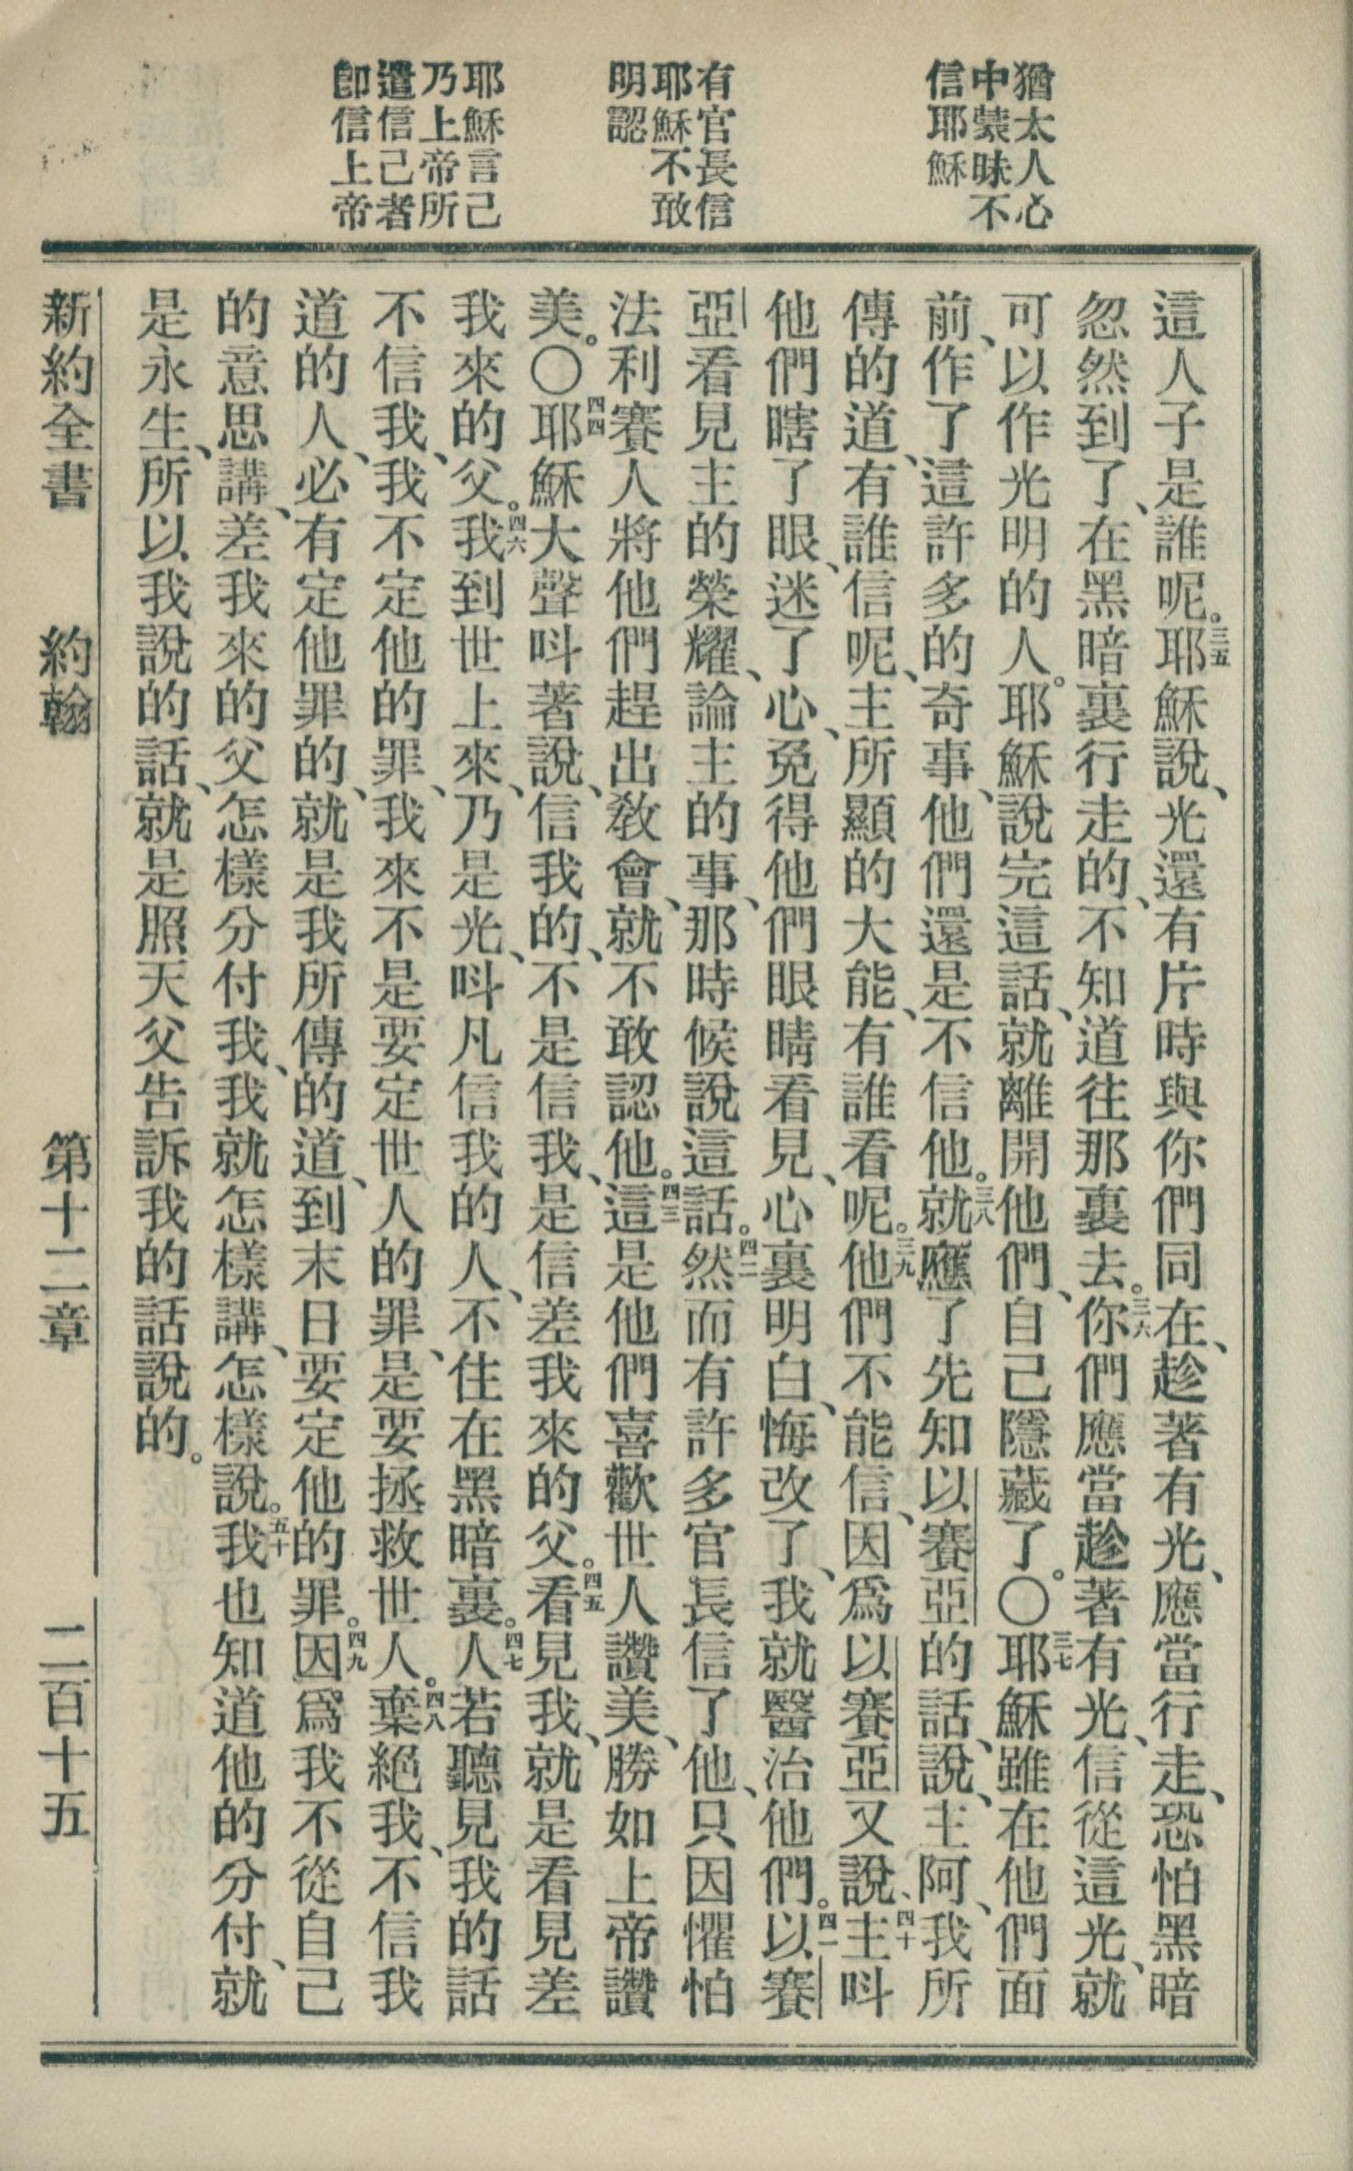 猶太人心
中蒙昧不
信耶穌
有官長信
耶穌不敢
明認
耶穌言己
乃上帝所
遣信己者
卽信上帝
這人子是誰呢。三五耶穌說、光還有片時與你們同在、趁著有光、應當行走、恐怕黑暗
忽然到了、在黑暗裏行走的、不知道往那裏去。三六你們應當趁著有光、信從這光、就
可以作光明的人。耶穌說完這話、就離開他們、自己隱藏了。〇三七耶穌雖在他們面
前、作了這許多的奇事、他們還是不信他。三八就應了先知以賽亞的話、說、主阿、我所
傳的道、有誰信呢、主所顯的大能、有誰看呢。三九他們不能信、因爲以賽亞又說、四十主呌
他們瞎了眼、迷了心、免得他們眼睛看見、心裏明白、悔改了、我就醫治他們。四一以賽
亞看見主的榮耀、論主的事、那時候說這話。四二然而有許多官長信了他、只因懼怕
法利賽人將他們趕出敎會、就不敢認他。四三這是他們喜歡世人讚美、勝如上帝讚
美。〇四四耶穌大聲呌著說、信我的、不是信我、是信差我來的父。四五看見我、就是看見差
我來的父。四六我到世上來、乃是光、呌凡信我的人、不住在黑暗裏。四七人若聽見我的話
不信我、我不定他的罪、我來不是要定世人的罪、是要拯救世人。四八棄絕我、不信我
道的人、必有定他罪的、就是我所傳的道、到末日要定他的罪。四九因爲我不從自己
的意思講、差我來的父怎樣分付我、我就怎樣講、怎樣說。五十我也知道他的分付、就
是永生、所以我說的話、就是照天父告訴我的話說的。
新約全書 約翰 第十二章 二百十五